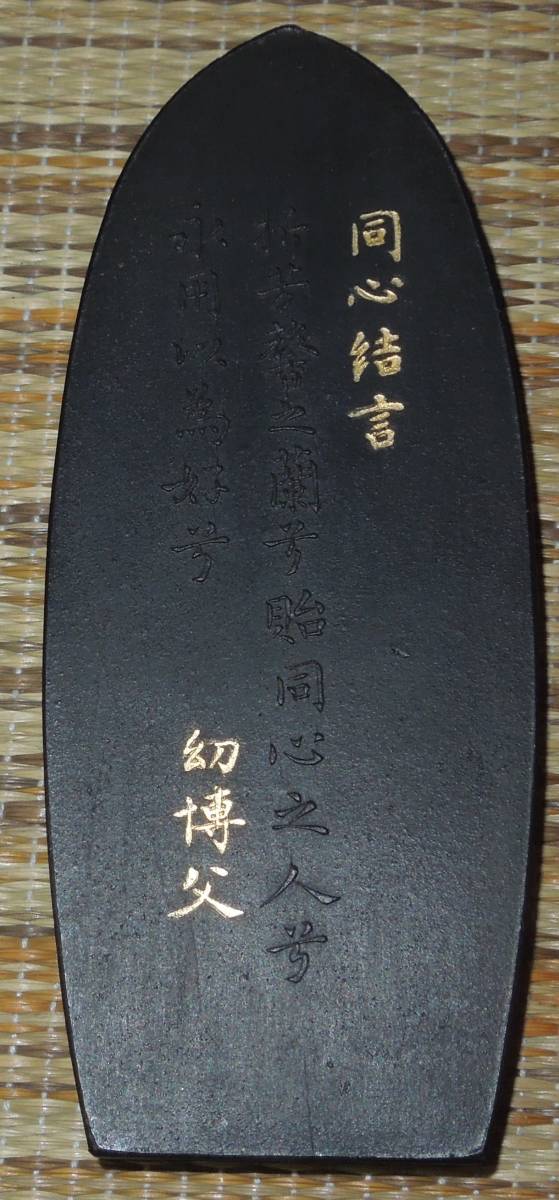 同心结言
折芳馨之蘭兮貽同心之人兮
永用以為好兮
幼博父